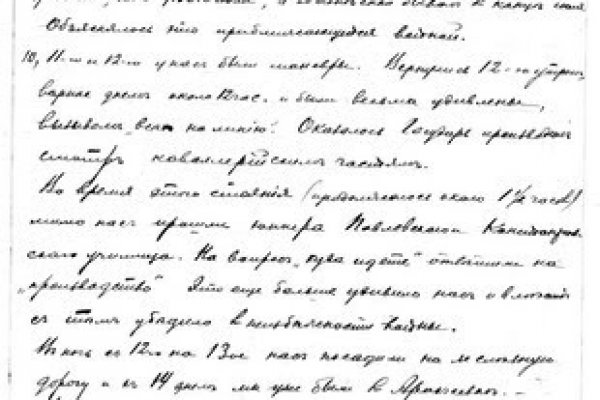 Объяснялось это приближающейся войной.
10, 11-го и 12-го у нас были маневры. Вернулись 12-го утром,
вернее днем около 12 час. и были весьма удивлены,
вызовом „всех на линию". Оказалось Государь производил
смотръ кавалерийским частям.
Во время этого стояния (продолжалось около 1½ часов)
мимо нас прошли юнкера Павловского Константинов-
ского училища. На вопрос „куда идете" ответили на
„производство" Это еще больше удивило нас и вместе
с тем убедило в неизбежности войны.
В ночь с 12-го на 13-ое нас посадили на железную
дорогу и в 14 днем мы уже были в